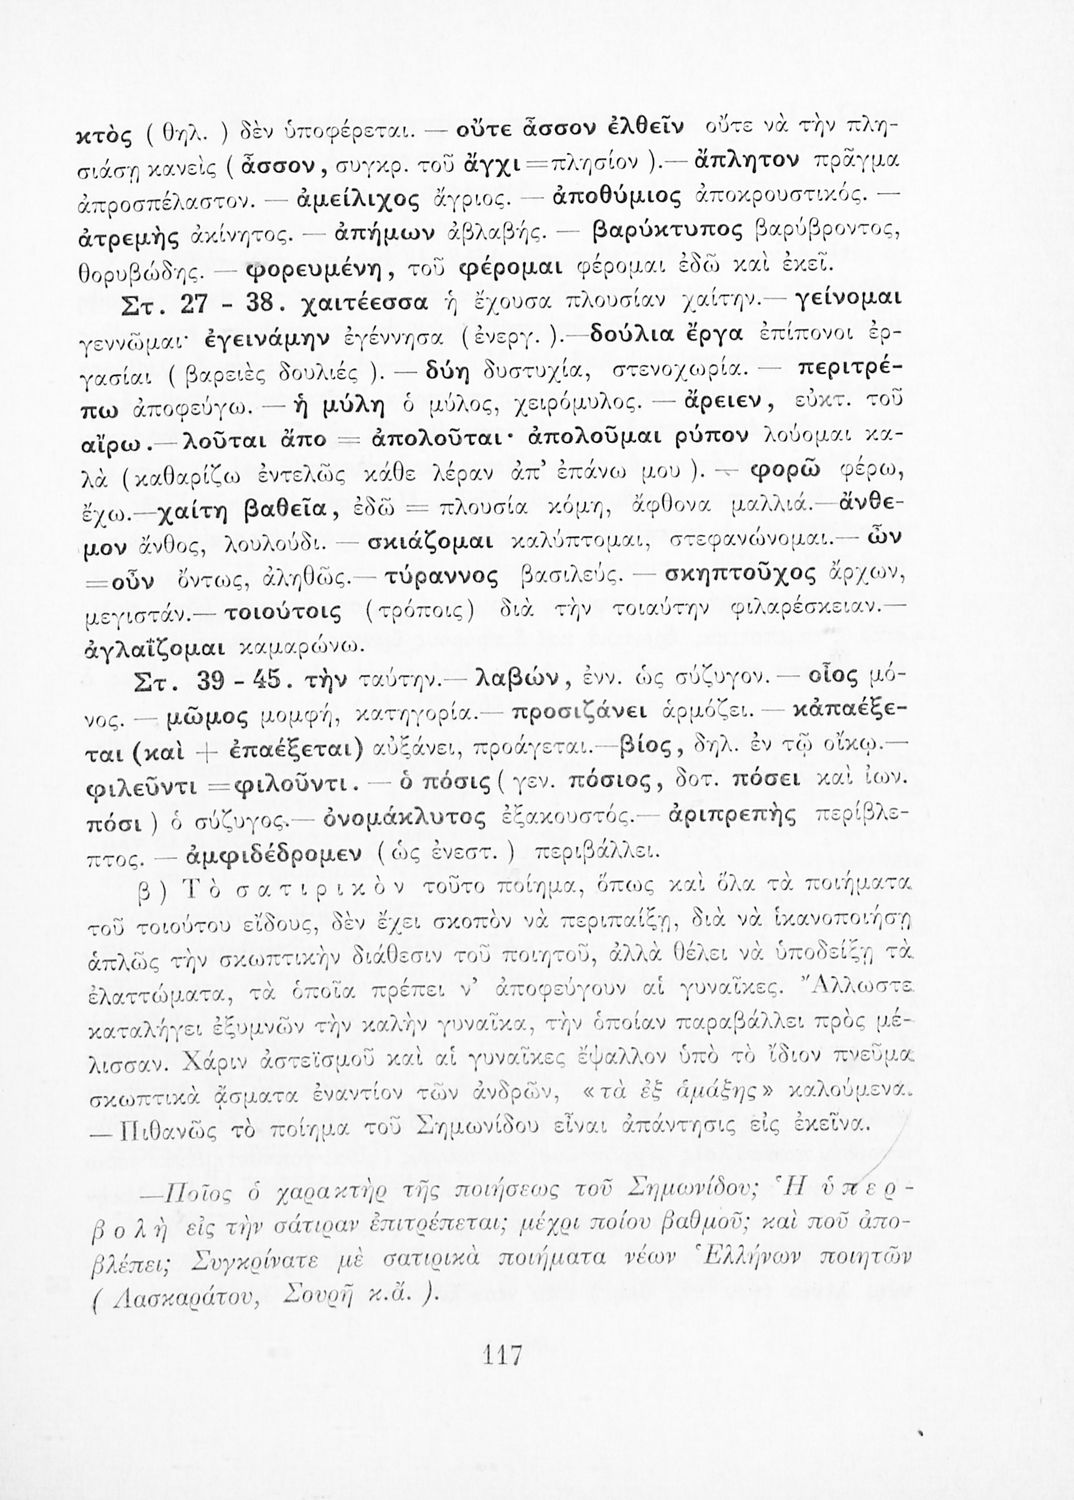 κτὸς ( θηλ. ) δὲν ὑποφέρεται. — οὔτε ἆσσον ἐλθεῖν οὔτε νὰ τὴν πλη-
σιάσῃ κανεὶς ( ἆσσον, συγκρ. τοῦ ἄγχι = πλησίον ).— ἄπλητον πρᾶγμα
ἀπροσπέλαστον. — ἀμείλιχος ἄγριος. — ἀποθύμιος ἀποκρουστικός. —
ἀτρεμὴς ἀκίνητος. — ἀπήμων ἀβλαβής. — βαρύκτυπος βαρύβροντος,
θορυβώδης. — φορευμένη, τοῦ φέρομαι φέρομαι ἐδῶ καὶ ἐκεῖ.
Στ. 27 - 38. χαιτέεσσα ἡ ἔχουσα πλουσίαν χαίτην.— γείνομαι
γεννῶμαι· ἐγεινάμην ἐγέννησα (ἐνεργ. ).— δούλια ἔργα ἐπίπονοι ἐρ-
γασίαι ( βαρειὲς δουλιές ). — δύη δυστυχία, στενοχωρία. — περιτρέ-
πω ἀποφεύγω. — ἡ μύλη ὁ μύλος, χειρόμυλος. — ἄρειεν, εὐκτ. τοῦ
αἴρω.— λοῦται ἄπο = ἀπολοῦται· ἀπολοῦμαι ρύπον λούομαι κα-
λὰ (καθαρίζω ἐντελῶς κάθε λέραν ἀπ' ἐπάνω μου ). — φορῶ φέρω,
ἔχω.— χαίτη βαθεῖα, ἐδῶ = πλουσία κόμη, ἄφθονα μαλλιά.— ἄνθε-
μον ἄνθος, λουλούδι. — σκιάζομαι καλύπτομαι, στεφανώνομαι.— ὦν
=οὖν ὄντως, ἀληθῶς.— τύραννος βασιλεύς. — σκηπτοῦχος ἄρχων,
μεγιστάν.— τοιούτοις (τρόποις) διὰ τὴν τοιαύτην φιλαρέσκειαν.—
ἀγλαΐζομαι καμαρώνω.
Στ. 39 - 45. τὴν ταύτην.— λαβών, ἐνν. ὡς σύζυγον. — οἶος μό-
νος. — μῶμος μομφή, κατηγορία.— προσιζάνει ἁρμόζει. — κἀπαέξε-
ται (καὶ + ἐπαέξεται) αὐξάνει, προάγεται.— βίος, δηλ. ἐν τῷ οἴκῳ.—
φιλεῦντι = φιλοῦντι. — ὁ πόσις ( γεν. πόσιος, δοτ. πόσει καὶ ἰων.
πόσι ) ὁ σύζυγος.— ὀνομάκλυτος ἐξακουστός.— ἀριπρεπὴς περίβλε-
πτος. — ἀμφιδέδρομεν ( ὡς ἐνεστ. ) περιβάλλει.
β ) Τὸ σατιρικὸν τοῦτο ποίημα, ὅπως καὶ ὅλα τὰ ποιήματα
τοῦ τοιούτου εἴδους, δὲν ἔχει σκοπὸν νὰ περιπαίξῃ, διὰ νὰ ἱκανοποιήσῃ
ἁπλῶς τὴν σκωπτικὴν διάθεσιν τοῦ ποιητοῦ, ἀλλὰ θέλει νὰ ὑποδείξῃ τὰ
ἐλαττώματα, τὰ ὁποῖα πρέπει ν' ἀποφεύγουν αἱ γυναῖκες. Ἄλλωστε
καταλήγει ἐξυμνῶν τὴν καλὴν γυναῖκα, τὴν ὁποίαν παραβάλλει πρὸς μέ-
λισσαν. Χάριν ἀστεϊσμοῦ καὶ αἱ γυναῖκες ἔψαλλον ὑπὸ τὸ ἴδιον πνεῦμα
σκωπτικὰ ᾄσματα ἐναντίον τῶν ἀνδρῶν, «τὰ ἐξ ἁμάξης» καλούμενα.
— Πιθανῶς τὸ ποίημα τοῦ Σημωνίδου εἶναι ἀπάντησις εἰς ἐκεῖνα.
—Ποῖος ὁ χαρακτὴρ τῆς ποιήσεως τοῦ Σημωνίδου; Ἡ ὑπερ-
βολὴ εἰς τὴν σάτιραν ἐπιτρέπεται; μέχρι ποίου βαθμοῦ; καὶ ποῦ ἀπο-
βλέπει; Συγκρίνατε μὲ σατιρικὰ ποιήματα νέων Ἑλλήνων ποιητῶν
( Λασκαράτου, Σουρῆ κ.ἄ. ).
117